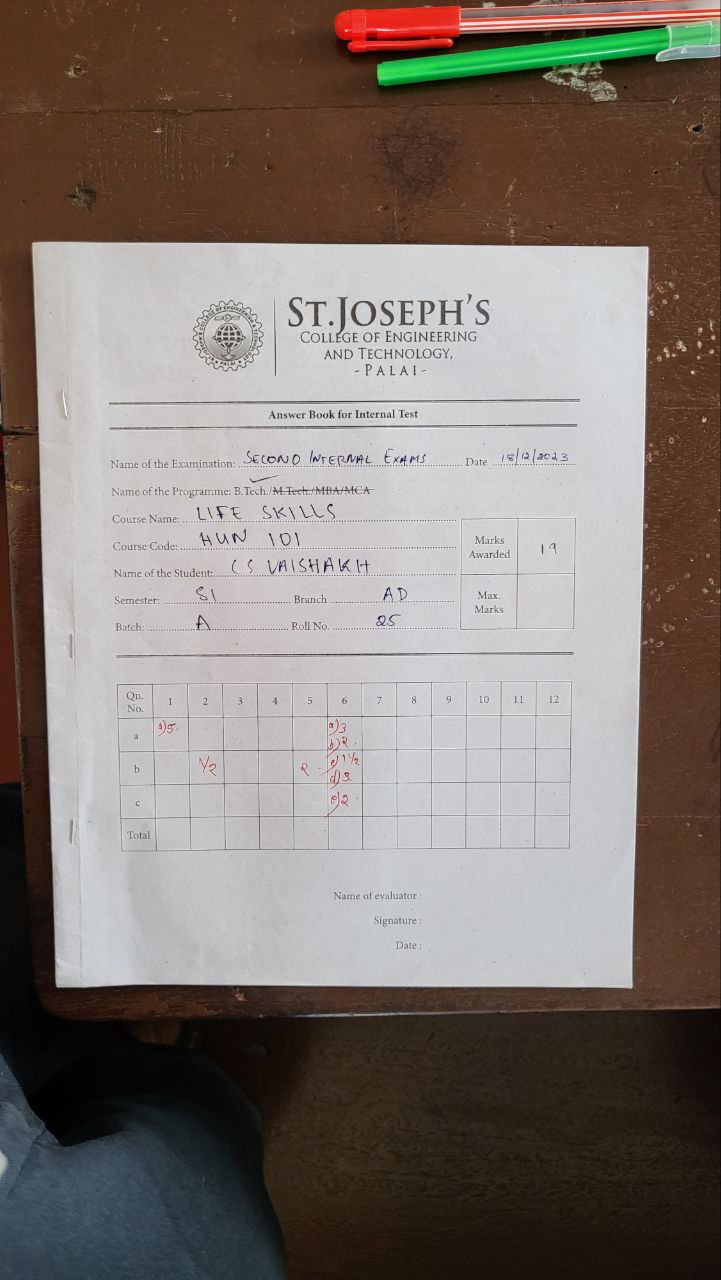 ST.JOSEPH'S
COLLEGE OF ENGINEERING
AND TECHNOLOGY,
- PALAI -
Answer Book for Internal Test
Name of the Examination: SECOND INTERNAL EXAMS Date 18/12/2023
Name of the Programme: B.Tech./M.Tech./MBA/MCA
Course Name: LIFE SKILLS
Course Code: HUN 101
Marks Awarded 19
Name of the Student: CS VAISHAKH
Semester: S1 Branch AD
Max. Marks
Batch: A Roll No. 25
Qn. No. 1 2 3 4 5 6 7 8 9 10 11 12
a a)5. a)3
b)2.
b 1/2 2 c)1 1/2
d)3
c e)2
Total
Name of evaluator :
Signature :
Date :